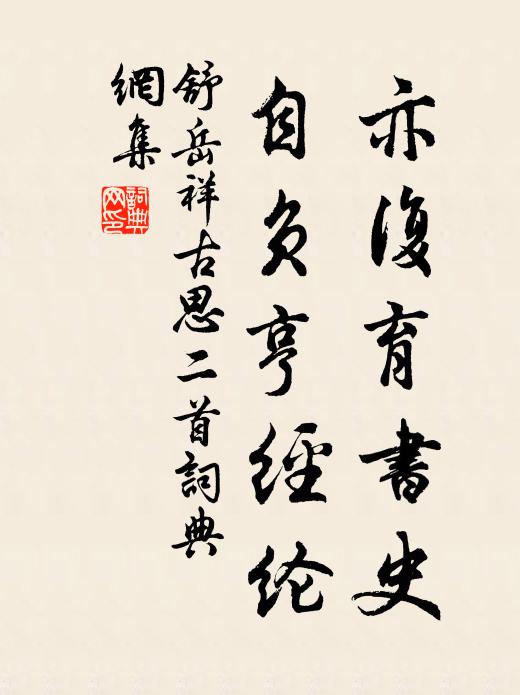 亦復育書史
自負亨經纶
舒岳祥古思二首詞典
網集
詞典網印